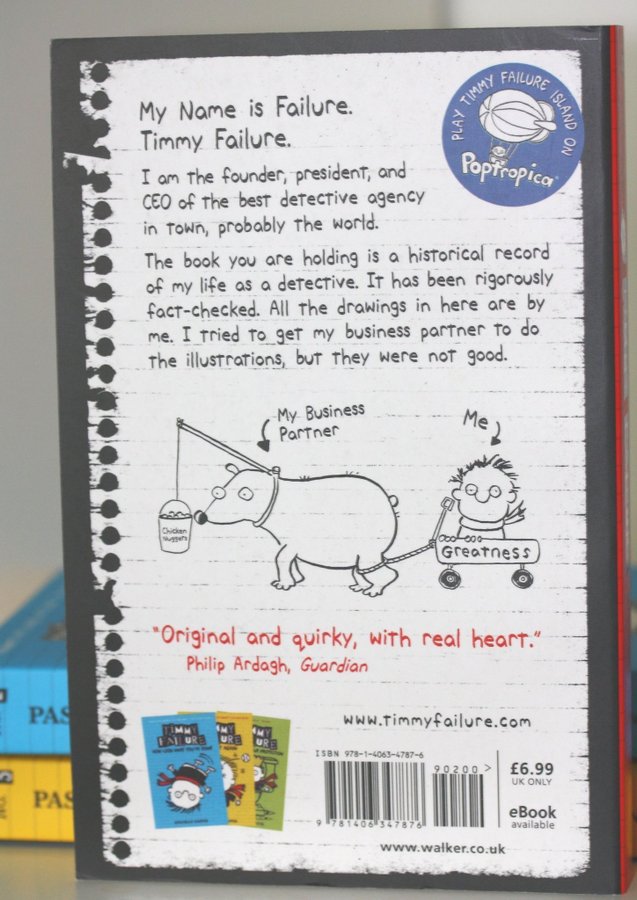 My Name is Failure.
Timmy Failure.
PLAY TIMMY FAILURE ISLAND ON
Poptropica
I am the founder, president, and
CEO of the best detective agency
in town, probably the world.
The book you are holding is a historical record
of my life as a detective. It has been rigorously
fact-checked. All the drawings in here are by
me. I tried to get my business partner to do
the illustrations, but they were not good.
My Business
Partner
Me
Chicken
Nuggets
Greatness
"Original and quirky, with real heart."
Philip Ardagh, Guardian
www.timmyfailure.com
TIMMY
FAILURE
ISBN 978-1-4063-4787-6
90200 >
9 781406 347876
£6.99
UK ONLY
eBook
available
www.walker.co.uk
PAS
PAS